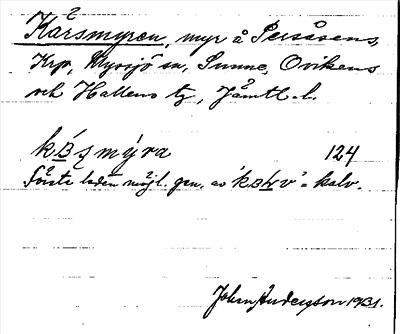 Kårsmyren, myr å Persåsens,
Krp, Myssjö sn, Sunne, Ovikens
och Hallens tg, Jämtl. l.
kɒ̄smýra 124
Förste leden möjl. gen. av 'kɒlv' = kalv.
John Andersson 1931.